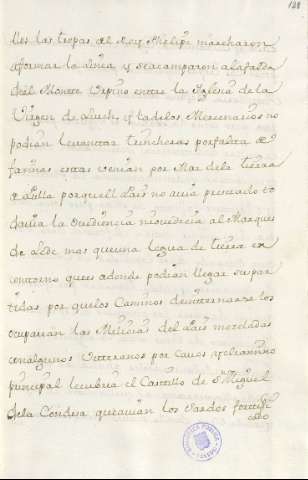 128
las tropas del Rey Phelipe marcharon
a formar la linea y se acamparon a la falda
del Monte entre la Yglesia de la
Virgen de y la de los Mercenarios no
podian levantar trincheras por falta de
faxinas estas venian por Mar de la tierra
de por que el Pais no avia prestado to
davia la ovediencia ni ovedecia al Marques
de Lede mas que una legua de tierra en
contorno que es adonde podian llegar sus par
tidas por que los Caminos de internarse los
ocupavan las Milicias del Pais mezcladas
con algunos Vetteranos por Cavos
principal le cubria el Castillo de Sn Miguel
de la Condesa que avian los Sardos fortifi
cado
BIBLIOTECA PUBLICA
TOLEDO